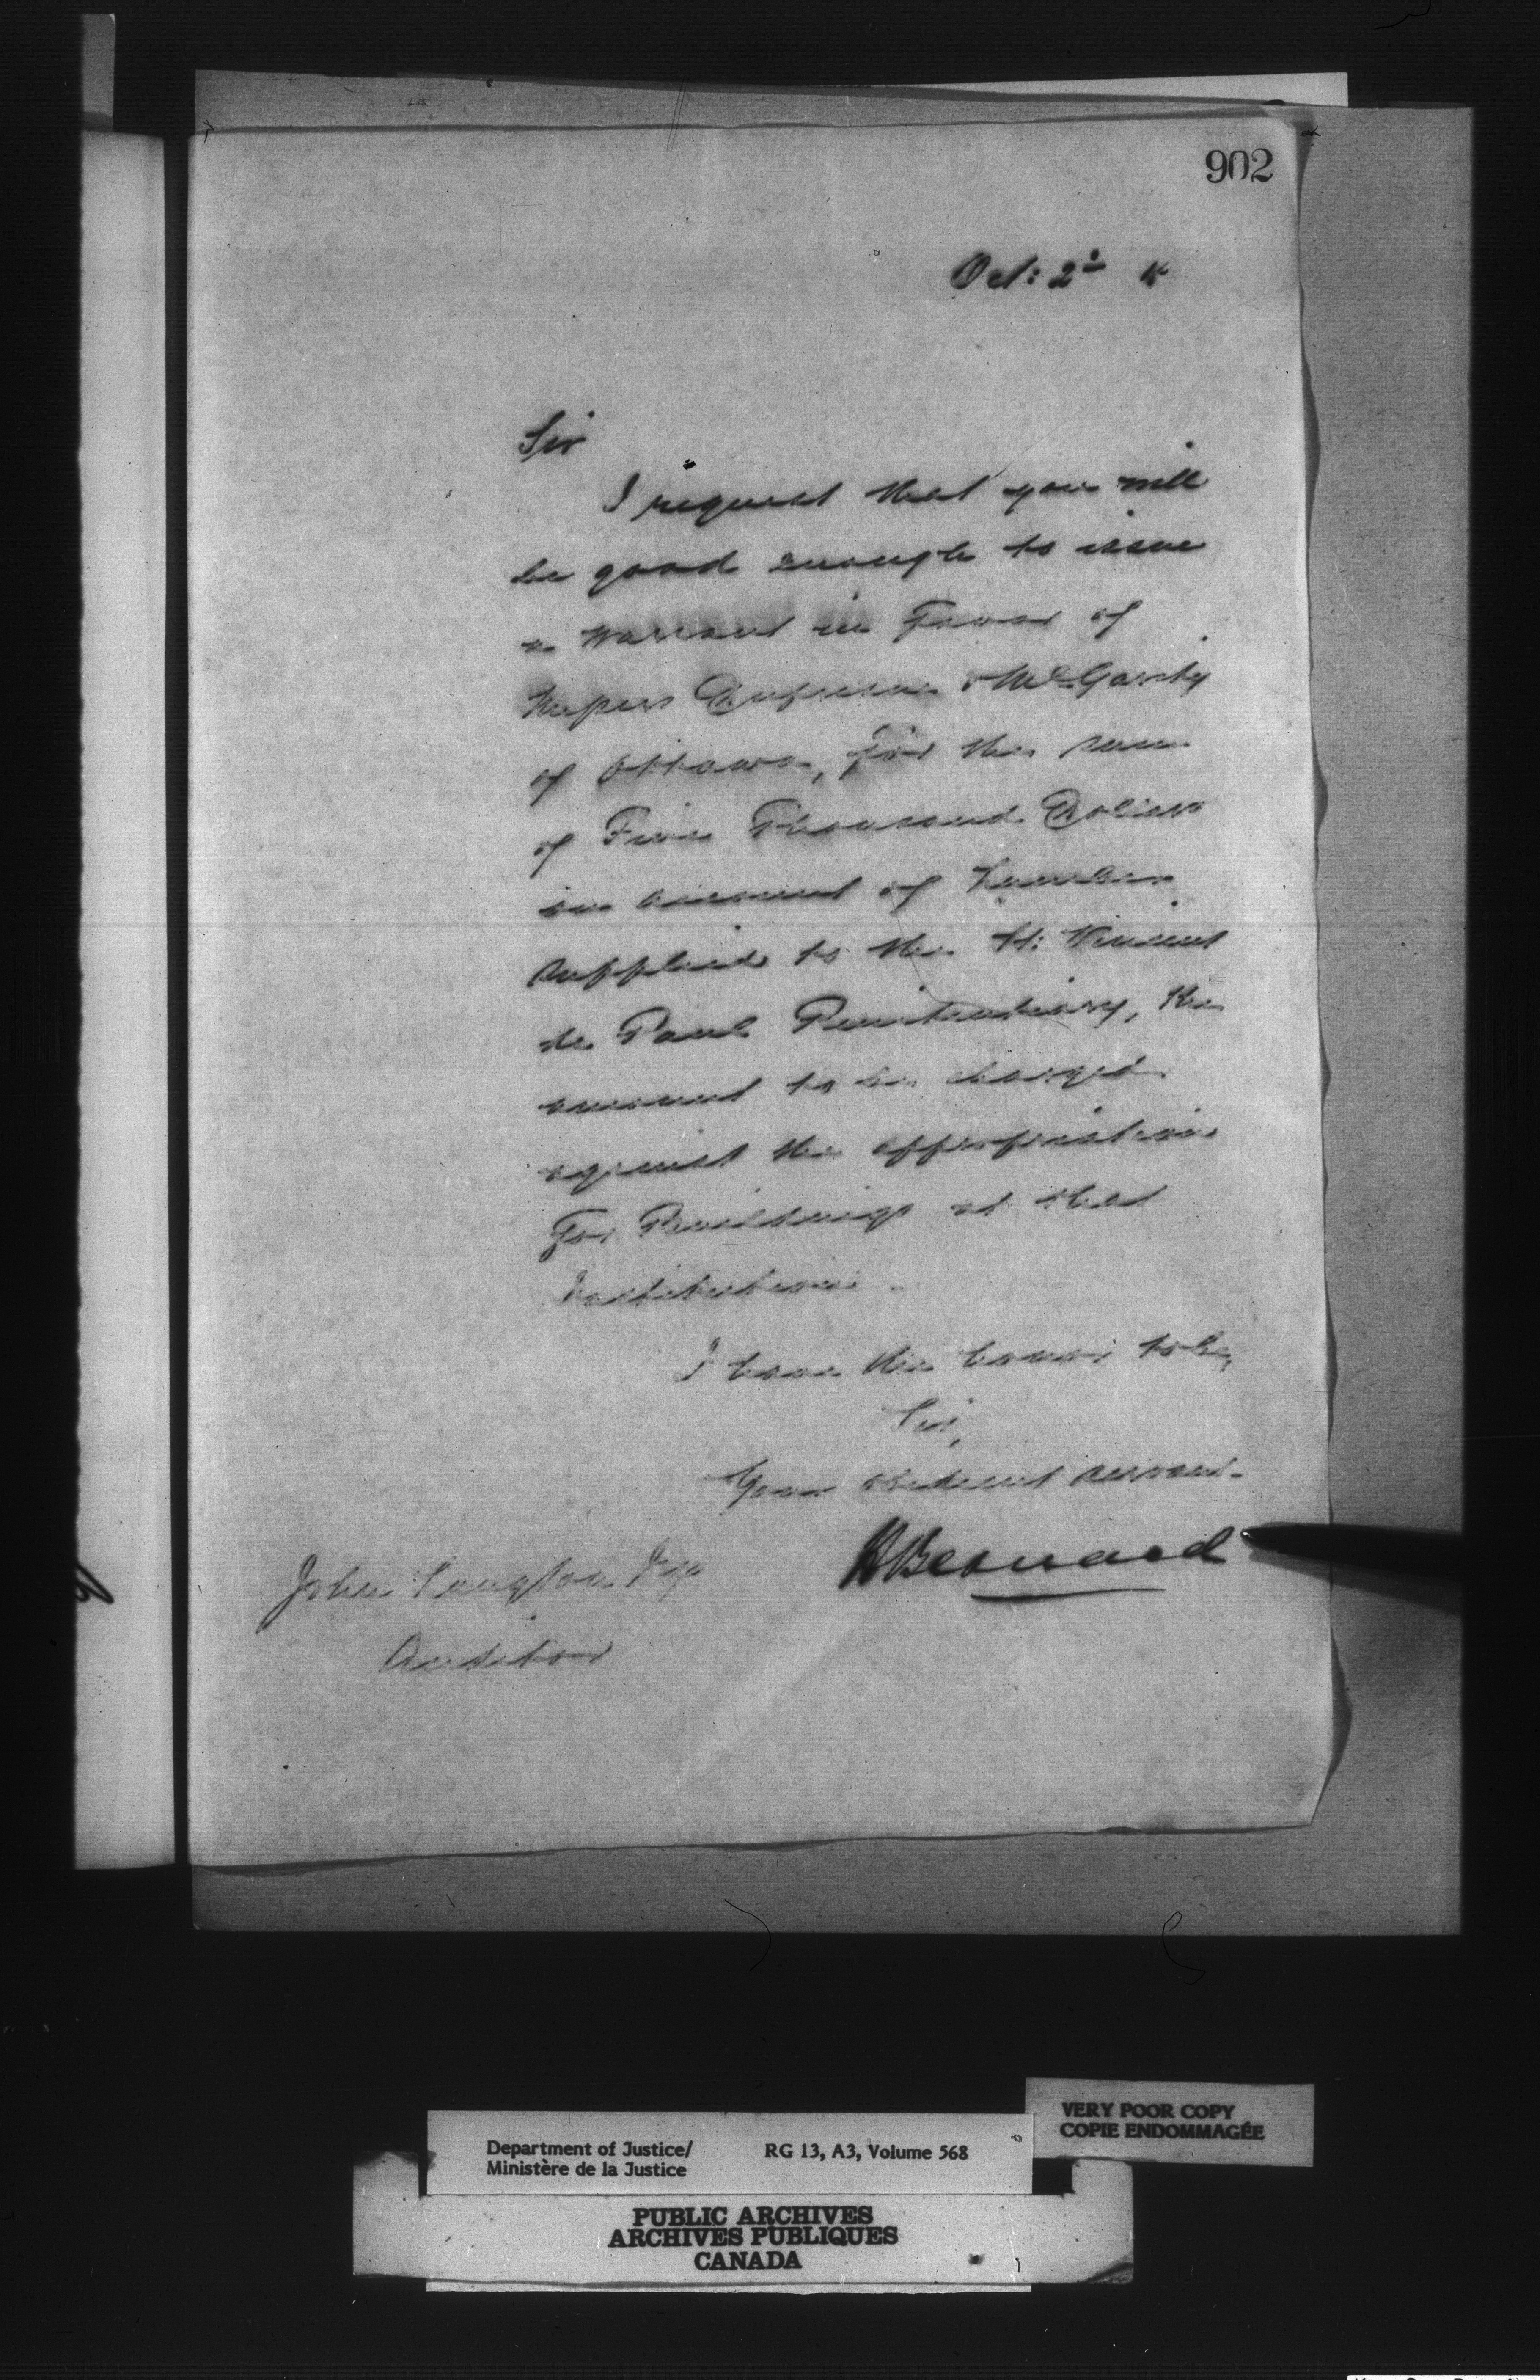 902
Oct: 2d
Sir
I request that you will
be good enough to issue
a Warrant in favor of
Messrs & McGarity
of Ottawa, for the sum
of Five Thousand Dollars
on account of Lumber
supplied to the St: Vincent
de Paul Penitentiary, the
amount to be charged
against the appropriation
for Buildings at that
Institution.
I have the honor to be,
Sir,
Your obedient servant.
HBernard
John Langton Esq
Auditor
VERY POOR COPY
COPIE ENDOMMAGÉE
Department of Justice/ RG 13, A3, Volume 568
Ministère de la Justice
PUBLIC ARCHIVES
ARCHIVES PUBLIQUES
CANADA